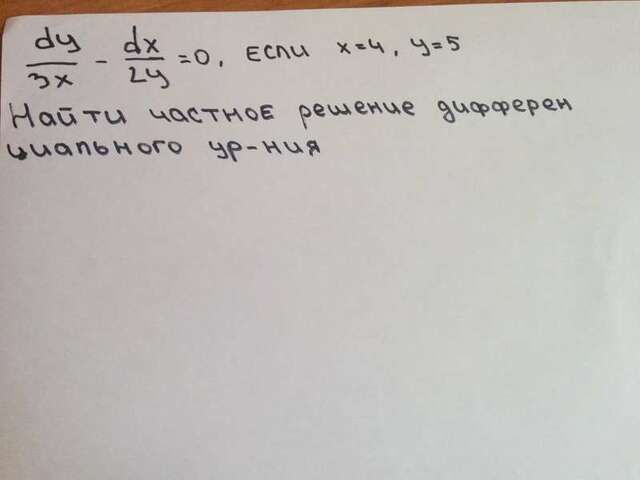 dy/3x - dx/2y = 0, если x=4, y=5
Найти частное решение дифферен
циального ур-ния